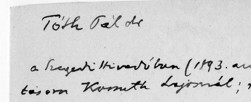 Tóth Pál de
a Szegedi Hiradóban (1893. au
tásom Kossuth Lajosnál;